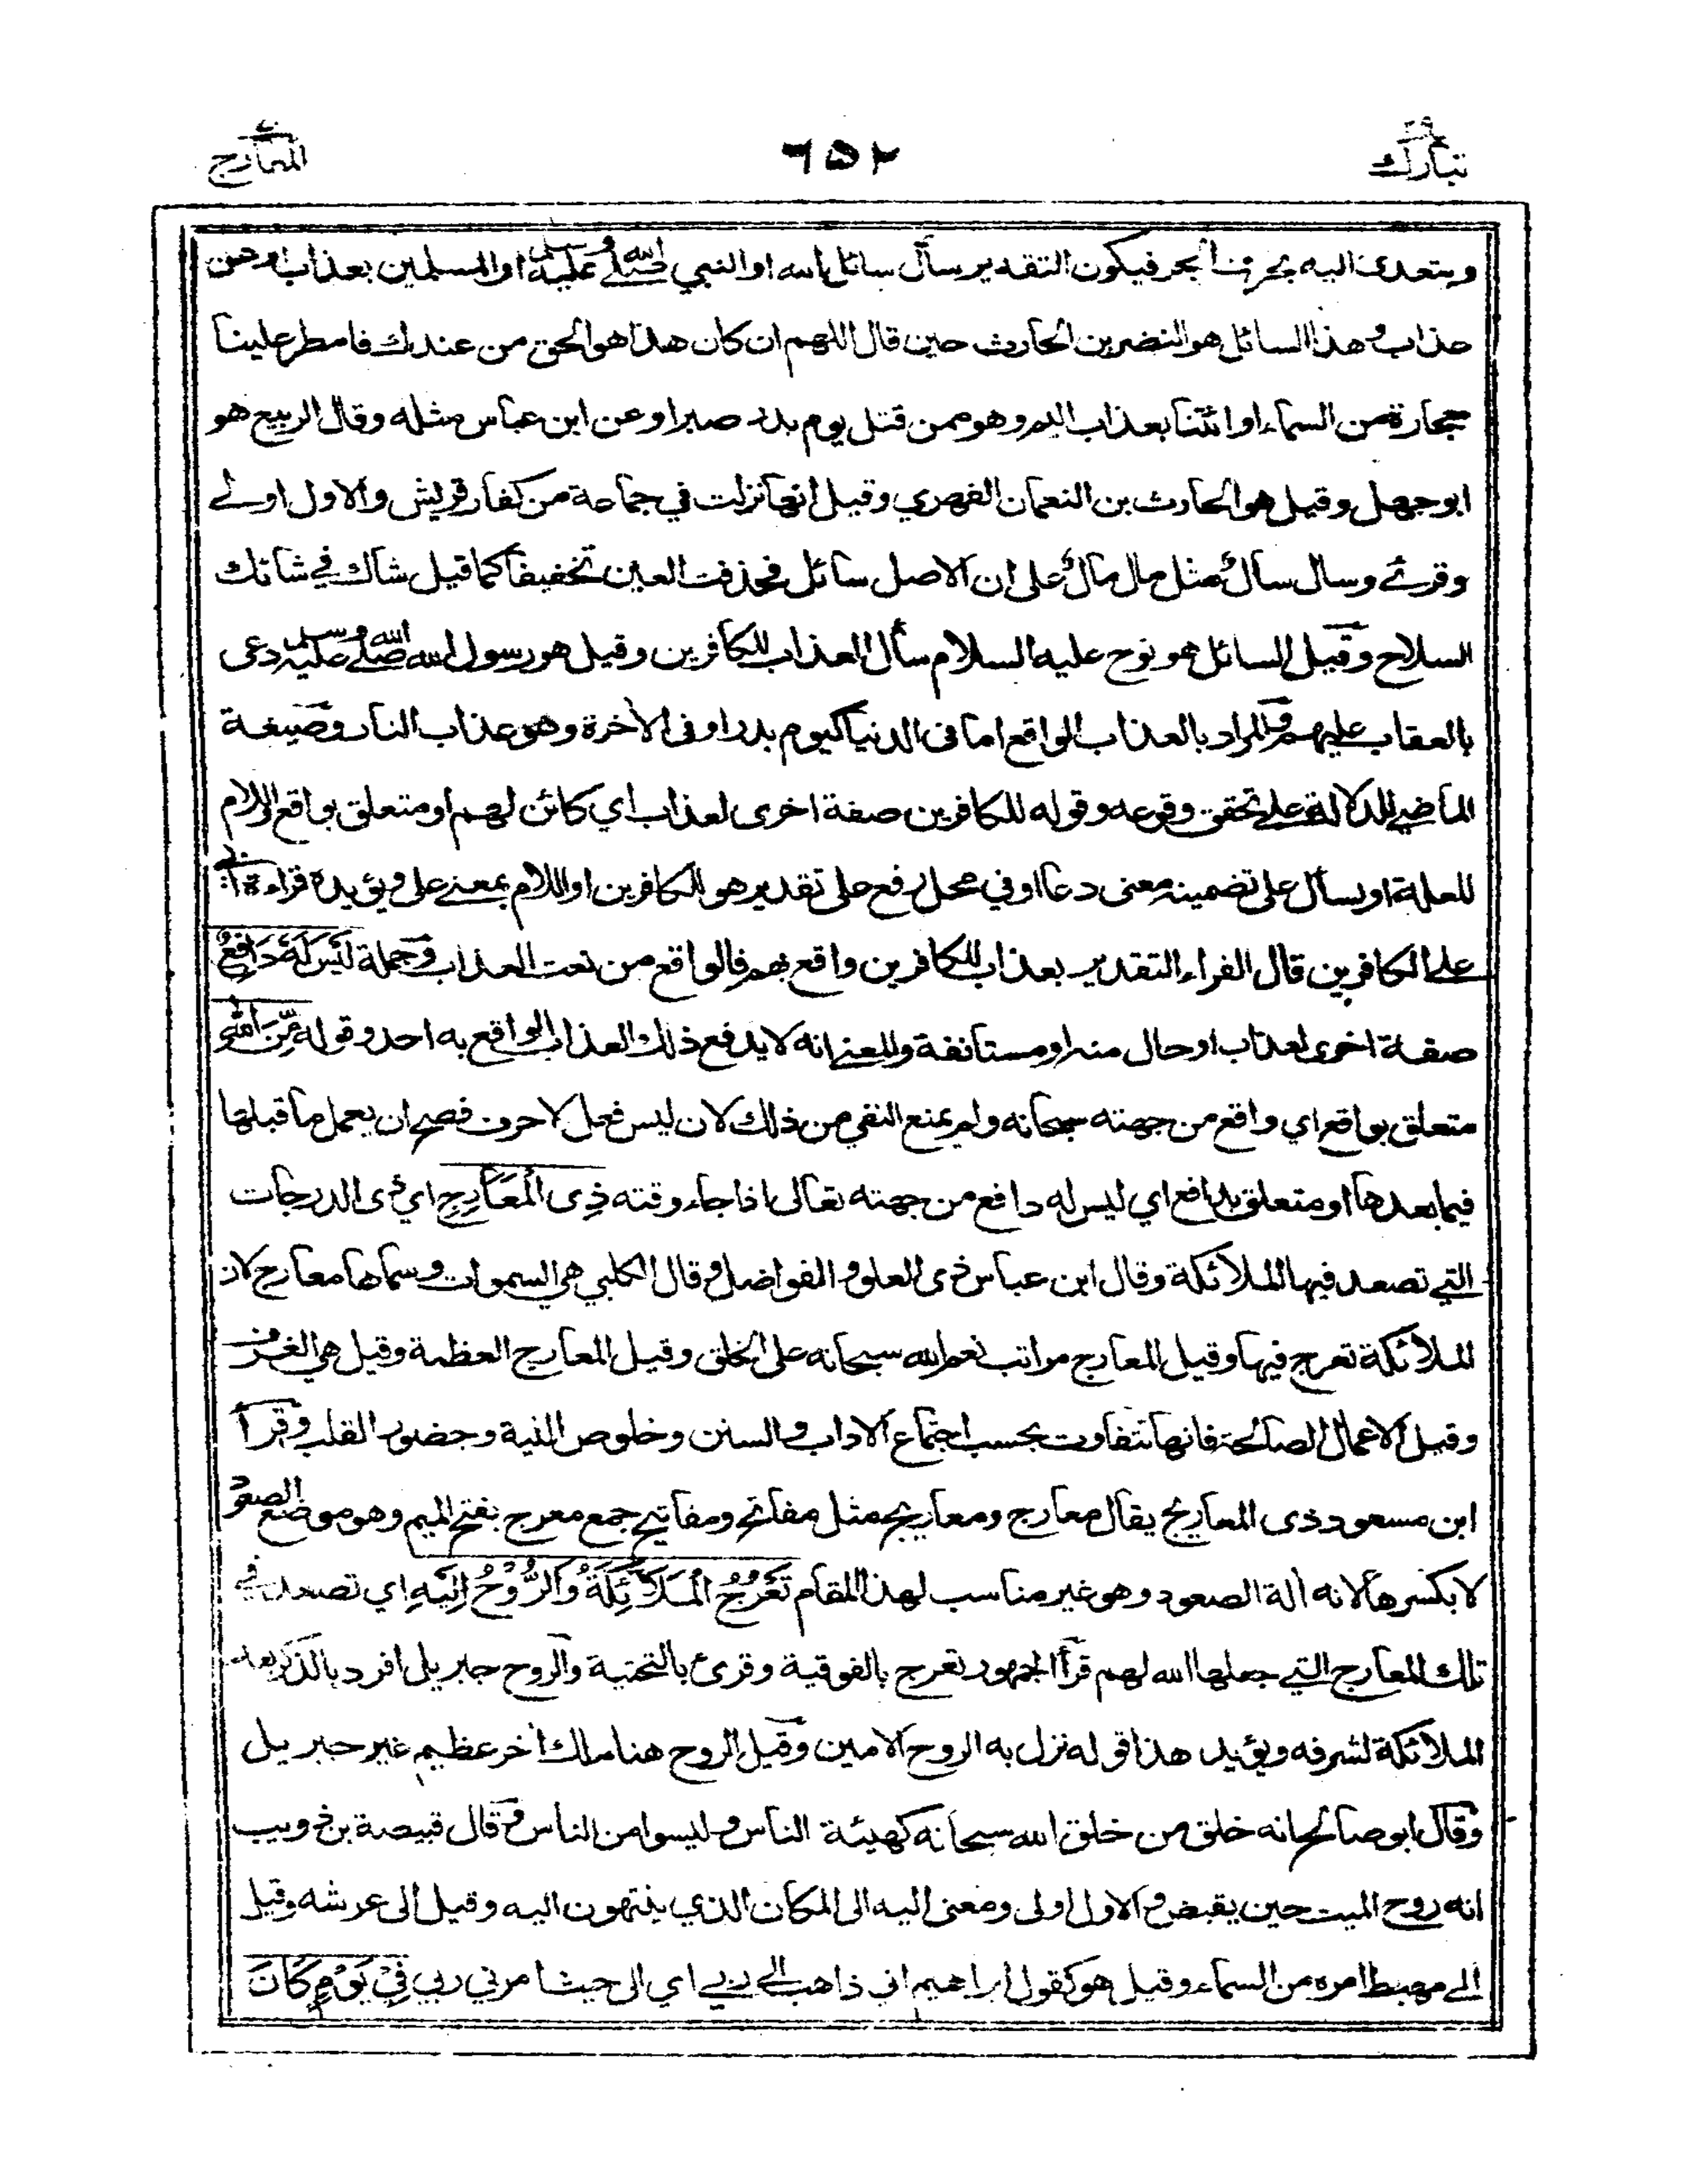 تبارك ٢٩
٦٥٢
المعارج
ويتعدى اليه بحرف الجر فيكون التقدير سأل سائل الله او النبي صلى الله عليه وسلم او المسلمين بعذاب او عن
عذاب وهذا السائل هو النضر بن الحارث حين قال اللهم ان كان هذا هو الحق من عندك فامطر علينا
حجارة من السماء او ائتنا بعذاب اليم وهو ممن قتل يوم بدر صبرا وعن ابن عباس مثله وقال الربيع هو
ابو جهل وقيل هو الحارث بن النعمان الفهري وقيل انها نزلت في جماعة من كفار قريش والاول اولى
وقرئ وسال سال مثل مال مال على ان الاصل سائل فحذفت العين تخفيفا كما قيل شاك في شائك
السلاح وقيل السائل هو نوح عليه السلام سأل العذاب للكافرين وقيل هو رسول الله صلى الله عليه وسلم دعى
بالعقاب عليهم والمراد بالعذاب الواقع اما في الدنيا كيوم بدر او في الاخرة وهو عذاب النار وصيغة
الماضي للدلالة على تحقق وقوعه وقوله للكافرين صفة اخرى لعذاب اي كائن لهم او متعلق بواقع واللام
للعلة او بسأل على تضمينه معنى دعا او في محل رفع على تقدير هو للكافرين او اللام بمعنى على ويؤيده قراءة أبي
على الكافرين قال الفراء التقدير بعذاب للكافرين واقع بهم فالواقع من نعت العذاب وجملة لَيْسَ لَهُ دَافِعٌ
صفة اخرى لعذاب او حال منه او مستانفة والمعنى انه لا يدفع ذلك العذاب الواقع به احد وقوله مِّنَ اللهِ
متعلق بواقع اي واقع من جهته سبحانه ولم يمنع النفي من ذلك لان ليس فعل لا حرف فصح ان يعمل ما قبلها
فيما بعدها او متعلق بدافع اي ليس له دافع من جهته تعالى اذا جاء وقته ذِى الْمَعَارِجِ اي ذى الدرجات
التي تصعد فيها الملائكة وقال ابن عباس ذى العلو والفواضل وقال الكلبي هي السموات وسماها معارج لان
الملائكة تعرج فيها وقيل المعارج مراتب نعم الله سبحانه على الخلق وقيل المعارج العظمة وقيل هي الغرف
وقيل الاعمال الصالحة فانها تتفاوت بحسب اجتماع الاداب والسنن وخلوص النية وحضور القلب وقرأ
ابن مسعود ذى المعاريج يقال معارج ومعاريج مثل مفاتح ومفاتيح جمع معرج بفتح الميم وهو موضع الصعود
لا بكسرها لانه الة الصعود وهو غير مناسب لهذا المقام تَعْرُجُ الْمَلَائِكَةُ وَالرُّوْحُ اِلَيْهِ اي تصعد في
تلك المعارج التي جعلها الله لهم قرأ الجمهور تعرج بالفوقية وقرئ بالتحتية والروح جبريل افرد بالذكر بعد
الملائكة لشرفه ويؤيد هذا قوله نزل به الروح الامين وقيل الروح هنا ملك اخر عظيم غير جبريل
وقال ابو صالح انه خلق من خلق الله سبحانه كهيئة الناس وليسوا من الناس وقال قبيصة بن ذويب
انه روح الميت حين يقبض والاول اولى ومعنى اليه الى المكان الذي ينتهون اليه وقيل الى عرشه وقيل
الى مهبط امره من السماء وقيل هو كقول ابراهيم اني ذاهب الى ربي اي الى حيث امرني ربي فِيْ يَوْمٍ كَانَ